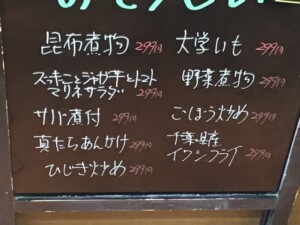 おそうざい
昆布煮物 299円
大学いも 299円
ズッキーニとジャガ芋とトマト
マリネサラダ 299円
野菜煮物 299円
サバ煮付 299円
ごぼう炒め 299円
真たらあんかけ 299円
千葉県産
イワシフライ 299円
ひじき炒め 299円